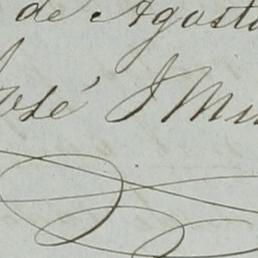 de Agosto
José I Mu